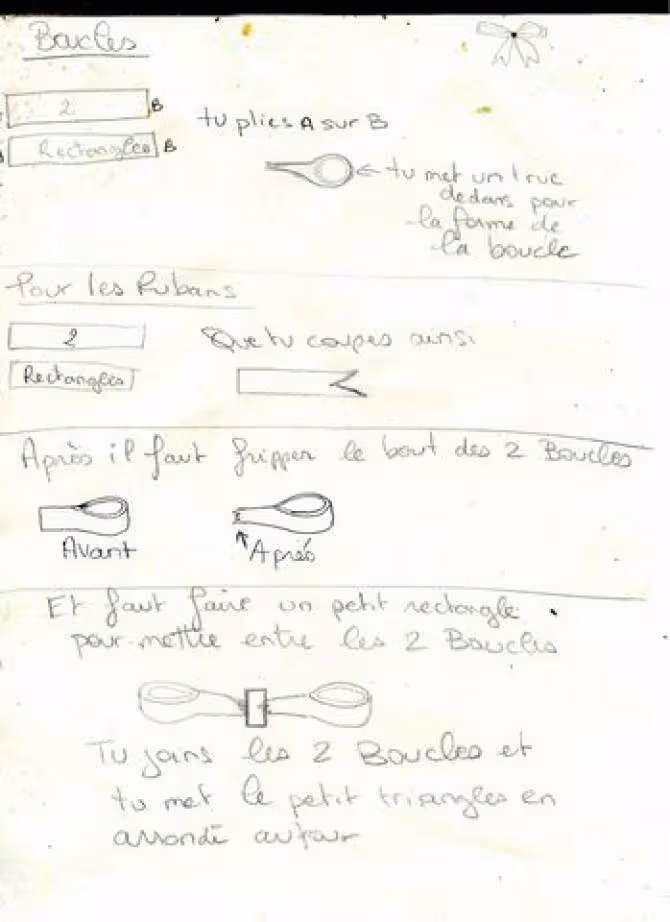 Boucles
2 B
tu plies A sur B
Rectangles B
tu met un truc
dedans pour
la forme de
la boucle
Pour les Rubans
2
Que tu coupes ainsi
Rectangles
Après il faut fripper le bout des 2 Boucles
Avant
Après
Et faut faire un petit rectangle
pour mettre entre les 2 Boucles
Tu joins les 2 Boucles et
tu met le petit triangles en
arrondi autour